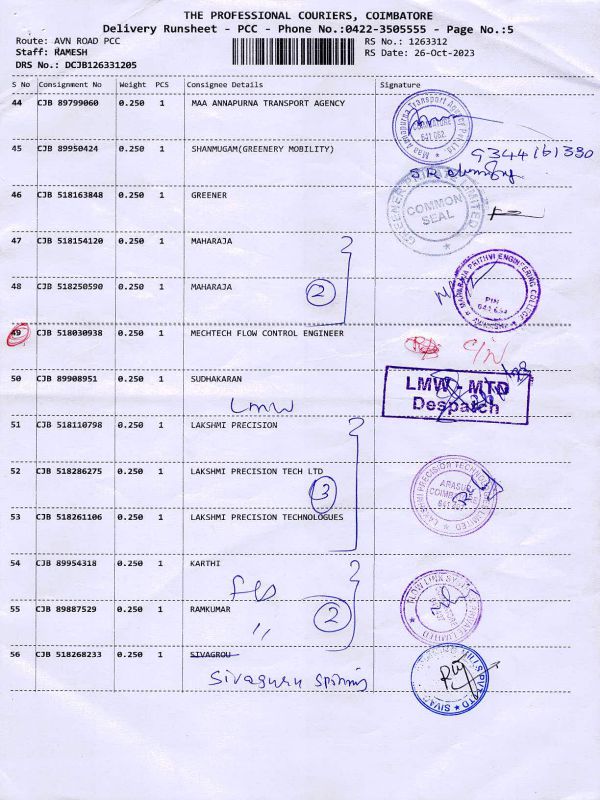 THE PROFESSIONAL COURIERS, COIMBATORE
Delivery Runsheet - PCC - Phone No.:0422-3505555 - Page No.:5
Route: AVN ROAD PCC RS No.: 1263312
Staff: RAMESH RS Date: 26-Oct-2023
DRS No.: DCJB126331205
S No Consignment No Weight PCS Consignee Details Signature
44 CJB 89799060 0.250 1 MAA ANNAPURNA TRANSPORT AGENCY
Maa Annapurna Transport Agency Pvt Ltd
641 062
45 CJB 89950424 0.250 1 SHANMUGAM(GREENERY MOBILITY)
9344161330
46 CJB 518163848 0.250 1 GREENER
COMMON SEAL
47 CJB 518154120 0.250 1 MAHARAJA
48 CJB 518250590 0.250 1 MAHARAJA
2
MAHARAJA PRITHVI ENGINEERING COLLEGE
PIN
641 654
AVINASHI
49 CJB 518030938 0.250 1 MECHTECH FLOW CONTROL ENGINEER
C/N
50 CJB 89908951 0.250 1 SUDHAKARAN
LMW
LMW - MTD
Despatch
51 CJB 518110798 0.250 1 LAKSHMI PRECISION
52 CJB 518286275 0.250 1 LAKSHMI PRECISION TECH LTD
3
LAKSHMI PRECISION TECHNOLOGIES LIMITED
ARASUR
COIMBATORE
641 407
53 CJB 518261106 0.250 1 LAKSHMI PRECISION TECHNOLOGUES
54 CJB 89954318 0.250 1 KARTHI
55 CJB 89887529 0.250 1 RAMKUMAR
"
2
56 CJB 518268233 0.250 1 SIVAGROU
Sivaguru Spinning